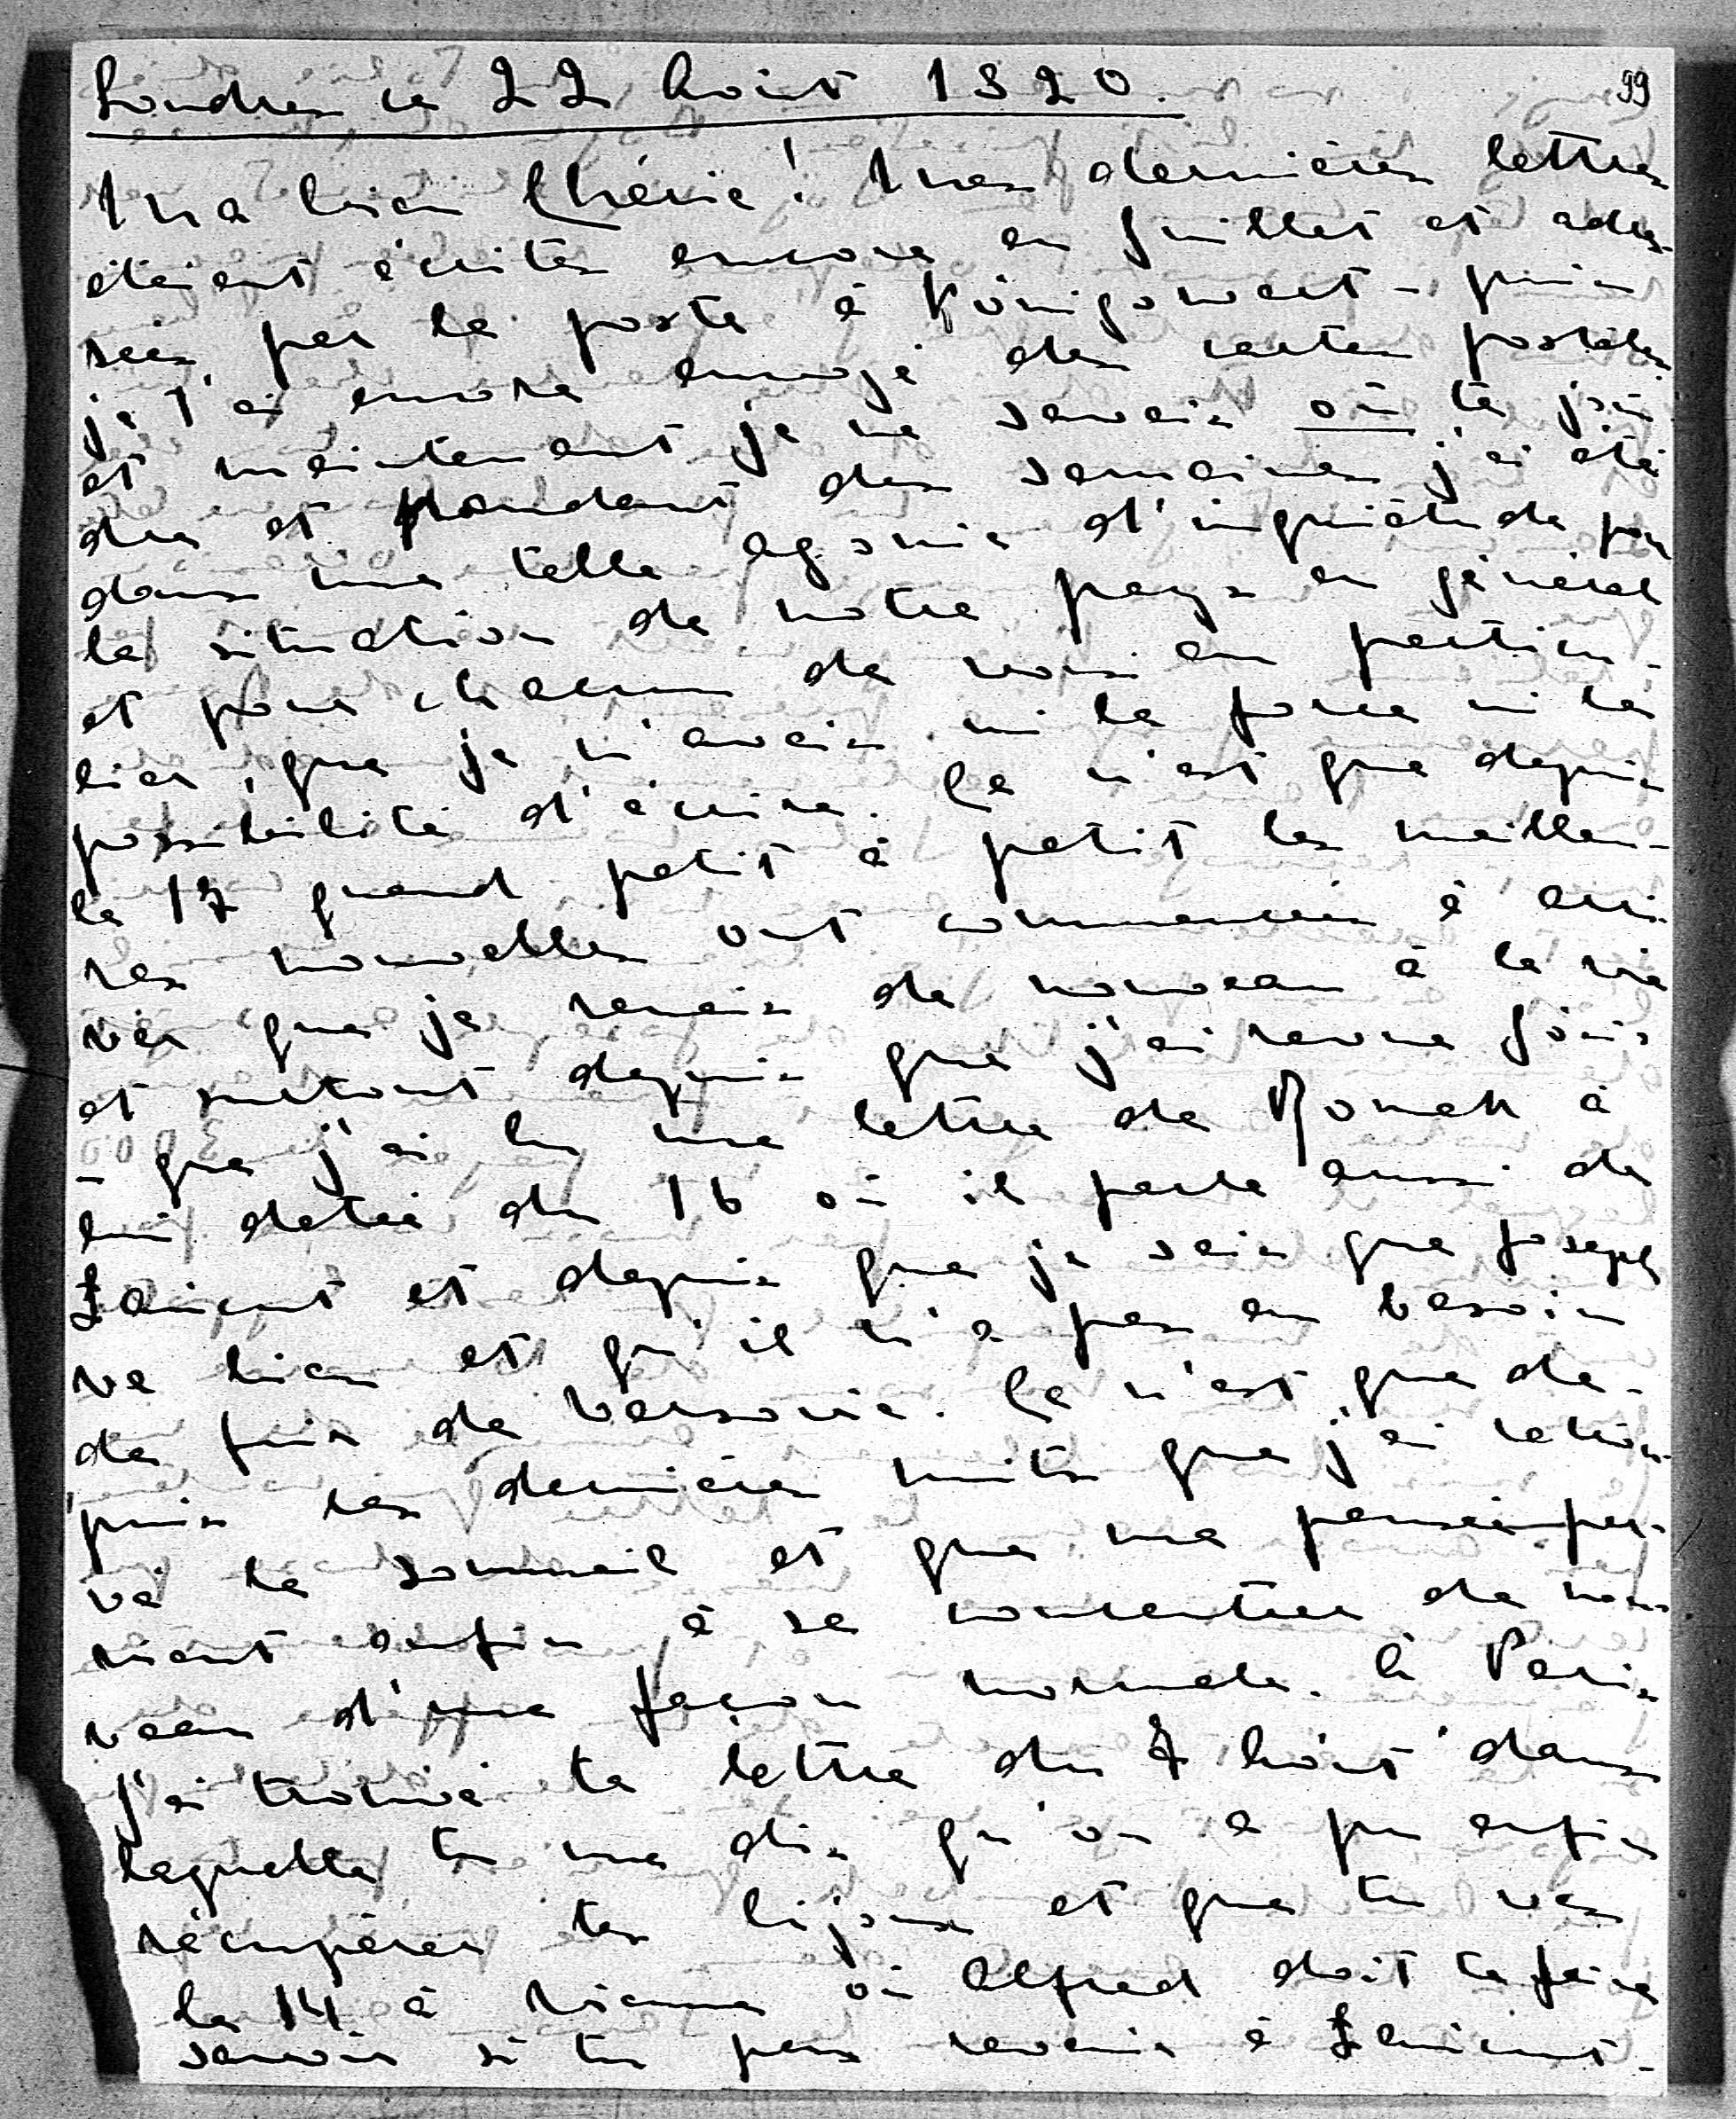 99
Londres le 22 Août 1920.
Ma bien Chérie! Mes dernières lettres
étaient écrites encore en Juillet et adres-
sées par la poste à Königswart - puis
je t'ai encore envoyé des cartes postales
et maintenant je ne savais où te join-
dre et pendant des semaines j'ai été
dans une telle agonie d'inquiétude par
la situation de notre pays en général
et pour chacun de nous en particu-
lier, que je n'avais ni la force ni la
possibilité d'écrire. Ce n'est que depuis
le 17 quand petit à petit les meilleu-
res nouvelles ont commencées à arri-
ver que je renais de nouveau à la vie
et surtout depuis que j'ai revue
- que j'ai lu une lettre de Roman à
lui datée du 16 où il parle aussi de
Łańcut et depuis que je sais que Joseph
va bien et qu'il n'a pas eu besoin
de fuir de Varsovie. Ce n'est que de-
puis ces dernières nuits que j'ai retrou-
vé le sommeil et que ma pensée par-
vient enfin à se concentrer de nou-
veau d'une façon normale. à Paris
j'ai trouvé ta lettre du 7 Août dans
laquelle tu me dis qu'on a pu enfin
récupérer tes bijoux et que tu vas
le 14 à Vienne où Alfred doit te faire
savoir si tu peux revenir à Łańcut.